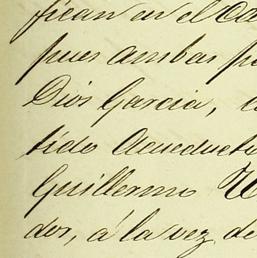 fican en el
pues ambas
Dios Garcia,
tido Acueducto
Guillermo
dos, á la vez de